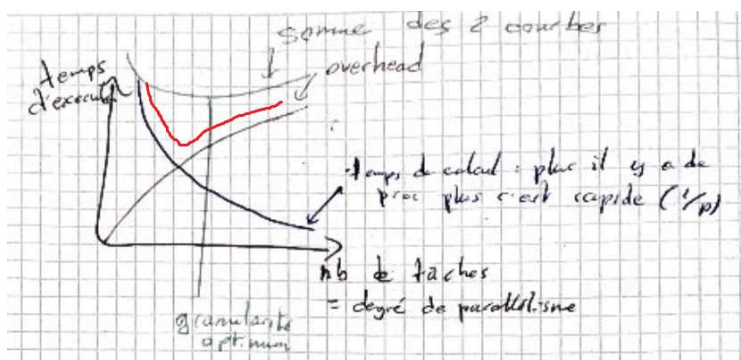 somme des 2 courbes
overhead
temps
d'execut
temps de calcul : plus il y a de
proc plus c'est rapide (1/p)
nb de taches
= degré de parallélisme
granularité
optimum